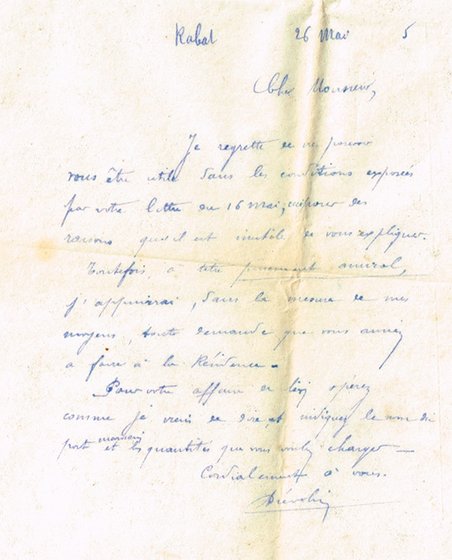 Rabat 26 Mai 5
Cher Monsieur,
Je regrette de ne pouvoir
vous être utile dans les conditions exposées
par votre lettre du 16 mai, pour des
raisons qu'il est inutile de vous expliquer.
Toutefois, à titre purement amical,
j'appuierai, dans la mesure de mes
moyens, toute demande que vous auriez
à faire à la Résidence.
Pour votre affaire de opérez
comme je viens de dire et indiquez le nom du
port marocain et les quantités que vous voulez charger —
Cordialement à vous.